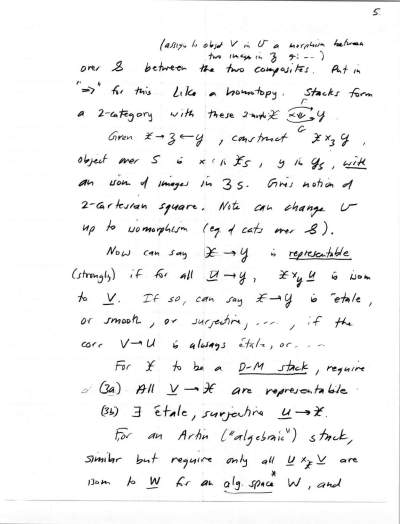 5.
(assign to object V in U a morphism between
two images in Z
over S between the two composites. Put in
"⇒" for this. Like a homotopy. Stacks form
a 2-category with these 2-mors X ⇓ Y. F G
Given X → Z ← Y, construct X ×_Z Y,
object over S is x in X_S, y in Y_S, with
an isom of images in Z_S. Gives notion of
2-cartesian square. Note can change U
up to isomorphism (eq of cats over S).
Now can say X → Y is representable
(strongly) if for all U → Y, X ×_Y U is isom
to V. If so, can say X → Y is étale,
or smooth, or surjective, ..., if the
corr V → U is always étale, or ...
For X to be a D-M stack, require
(3a) All V → X are representable
(3b) ∃ étale, surjective U → X.
For an Artin ("algebraic") stack,
similar but require only all U ×_X V are
isom to W for an alg. space* W, and